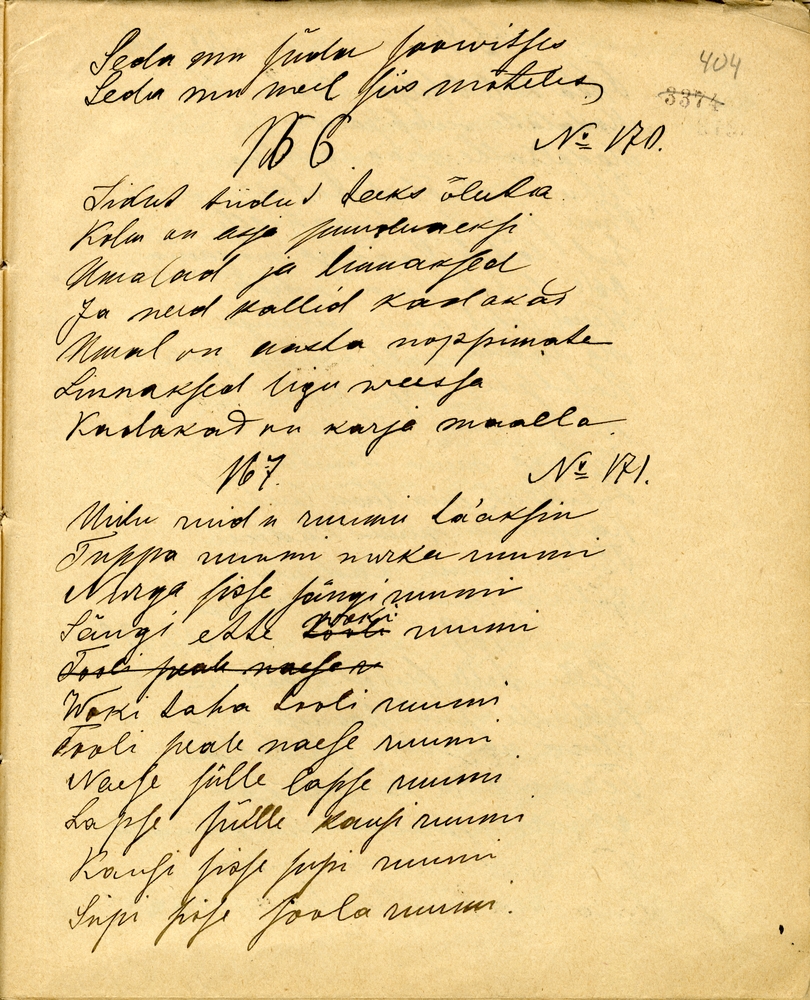 Seda mu süda soowitses
Seda mu meel siis mõteles
404
3374
№ 6 № 170.
tuidud teeks õluta
Kolm on asja puuduneksi
Umalad ja linnaksed
Ja need kallid kadakad
Umal on aasta noppimata
Linnaksed ligu weessa
Kadakad on karja maalla
№ 7. № 171.
ruumu tääksin
Tuppa ruumi nurka ruumi
Nurga sisse sängi ruumi
Sängi ette tooli woki ruumi
Tooli peale naese r
Woki taha tooli ruumi
Tooli peale naese ruumi
Naese sülle lapse ruumi
Lapse sülle kausi ruumi
Kausi sisse supi ruumi
Supi sisse soola ruumi.